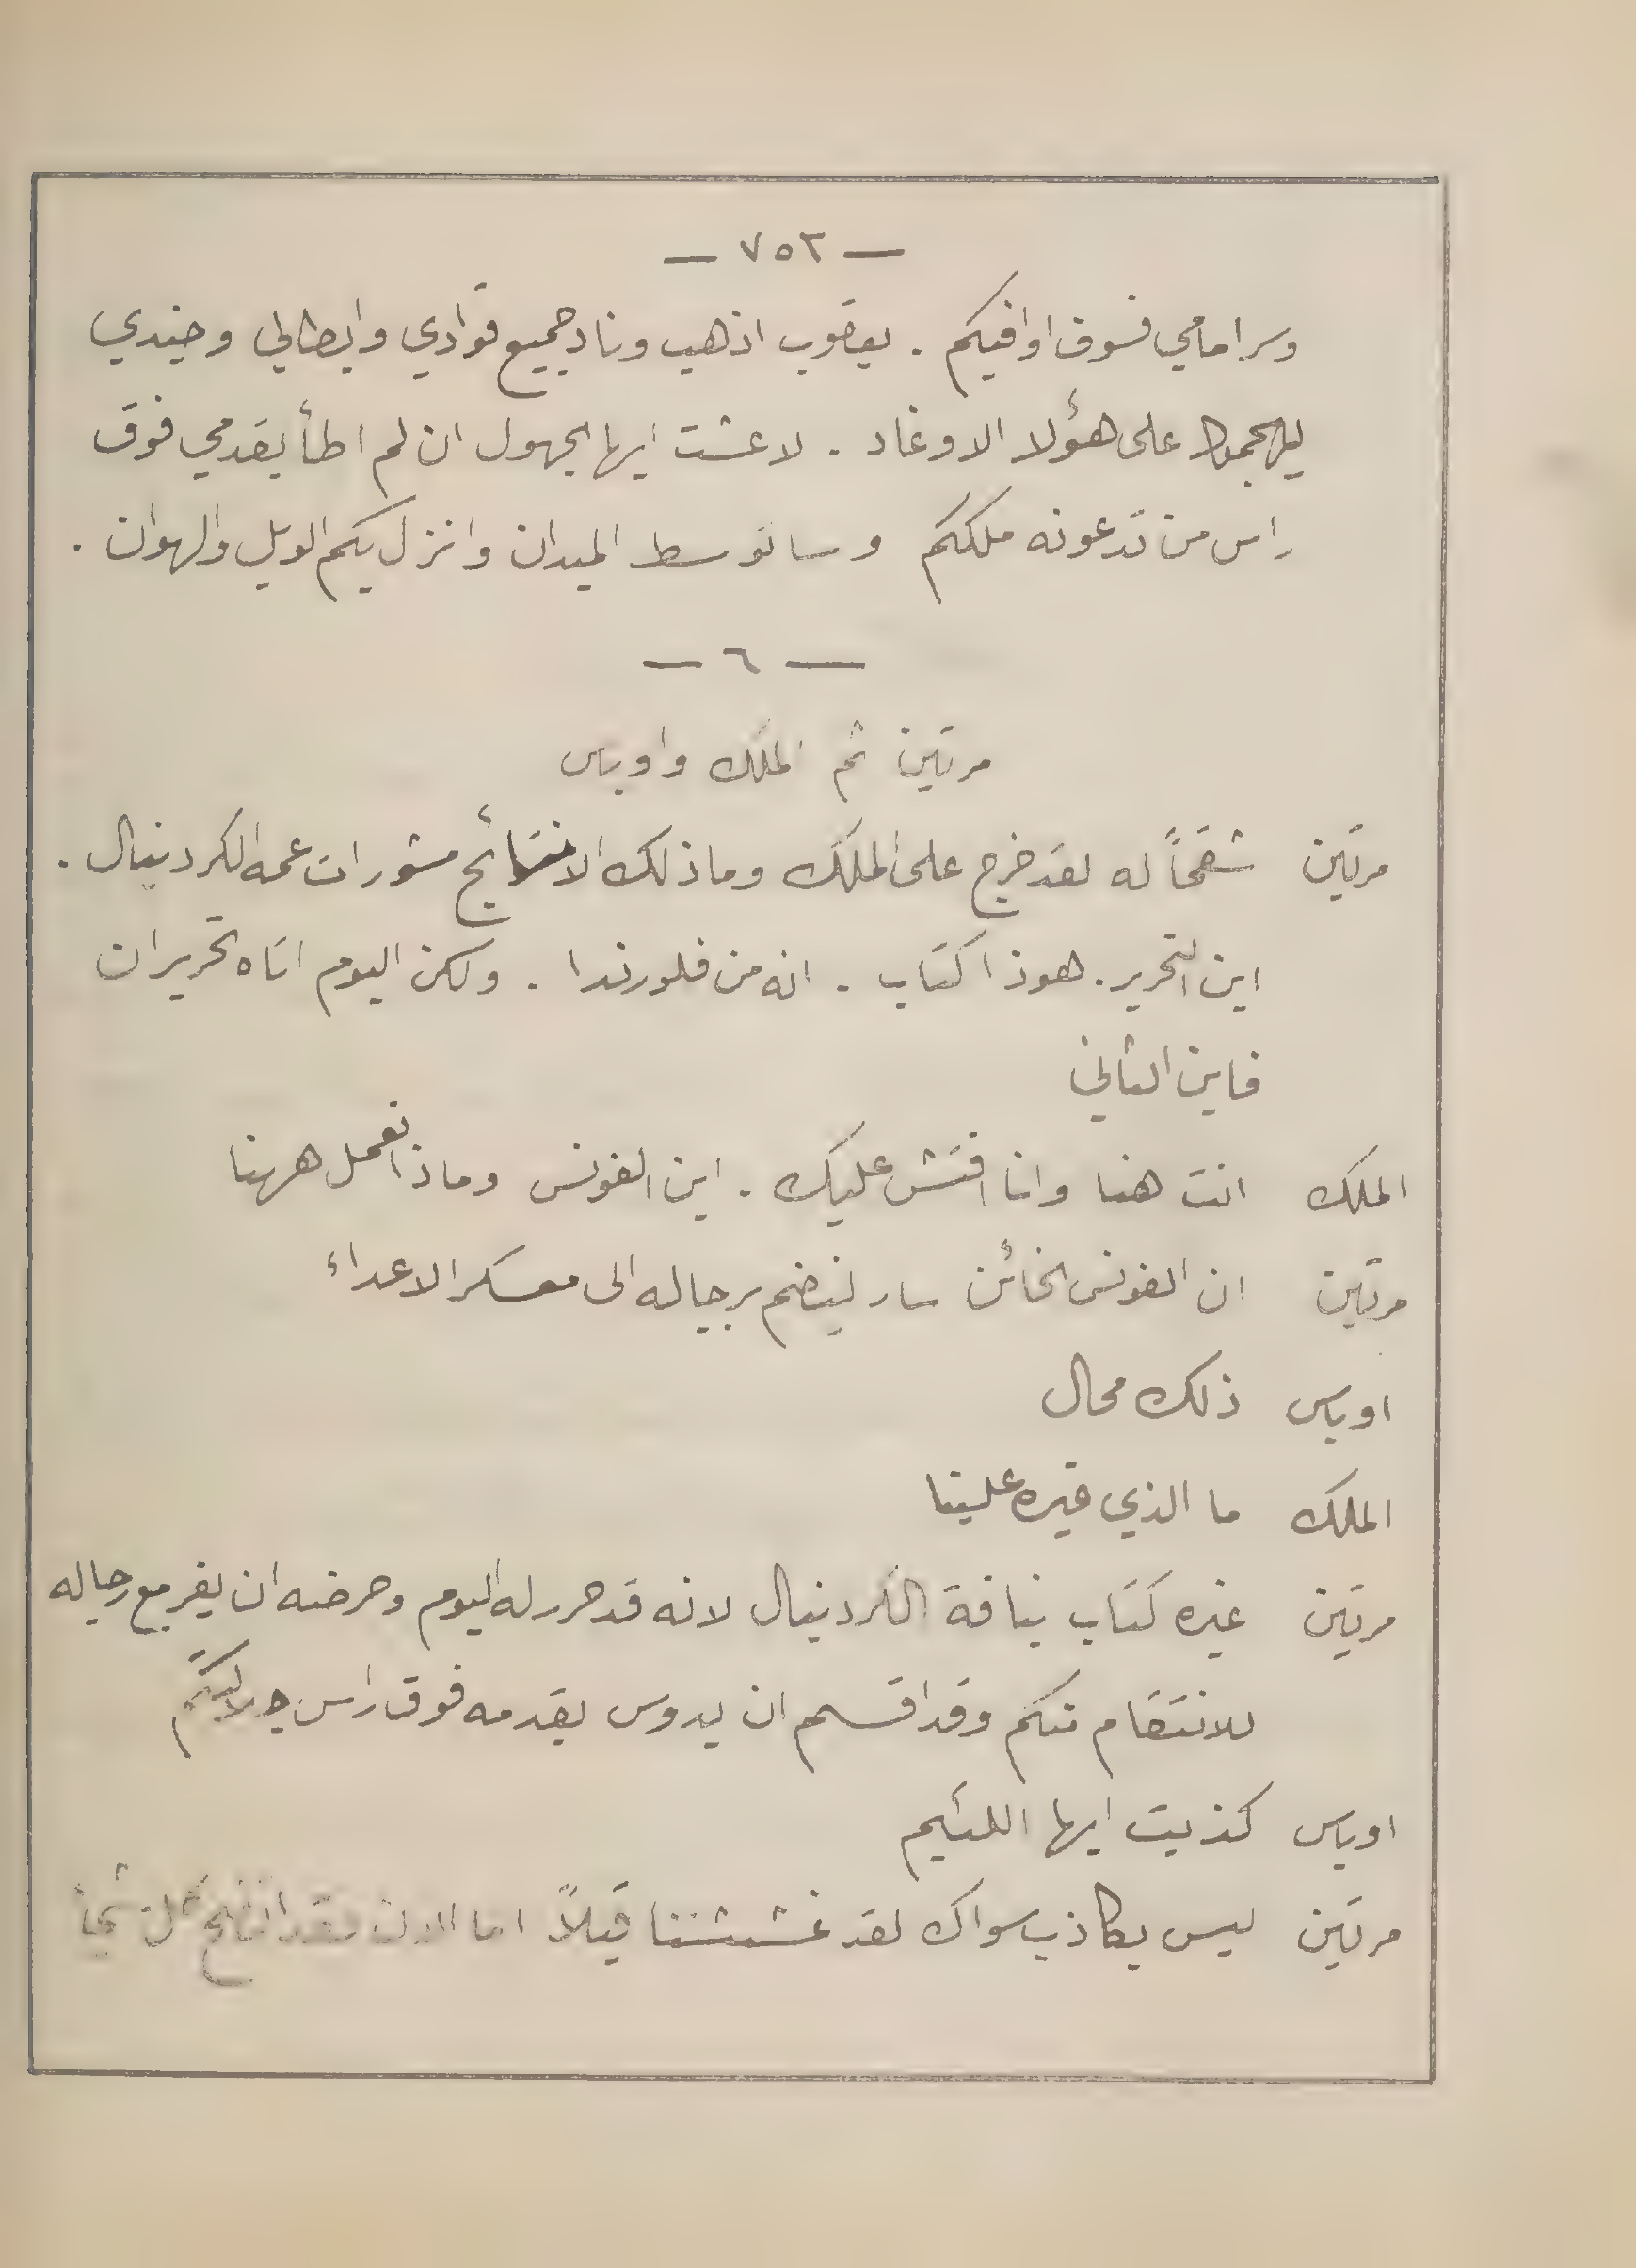 — ٧٥٢ —
وسر امامي فسوف اوافيكم . يعقوب اذهب وناد جميع قوّادي وابطالي وجندي
ليهجموا على هؤلاء الاوغاد . لا عشت ايها الجهول ان لم اطأ بقدمي فوق
راس من تدعونه ملككم وساتوسط الميدان وانزل بكم الويل والهوان .
— ٦ —
مرتين ثم الملك واوباس
مرتين شقحًا له لقد خرج على الملك وما ذلك الا نتائج مشورات عمه الكردينال .
اين التحرير . هوذا كتاب . انه من فلورندا . ولكن اليوم اتاه تحريران
فاين الثاني
الملك انت هنا وانا افتش عليك . اين الفونس وماذا تعمل ههنا
مرتين ان الفونس الخائن سار لينضم برجاله الى معسكر الاعداء
اوباس ذلك محال
الملك ما الذي غيره علينا
مرتين غيره كتاب نيافة الكردينال لانه قد حرر له اليوم وحرضه ان يفر مع رجاله
للانتقام منكم وقد اقسم ان يدوس بقدمه فوق راس جلالتكم
اوباس كذبت ايها اللئيم
مرتين ليس بكاذب سواك لقد غششتنا قبلاً اما الان فقد اتضح كل